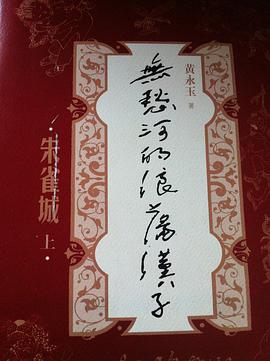 黄永玉 著
無愁河的浪蕩漢子
·朱雀城
上·